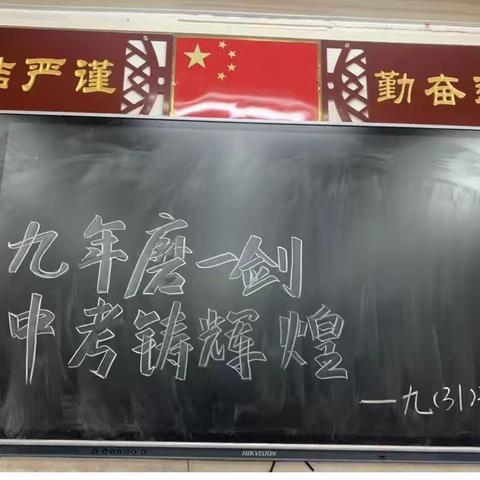 严谨
勤奋
九年磨一剑
中考铸辉煌
一九(31)
HIKVISION